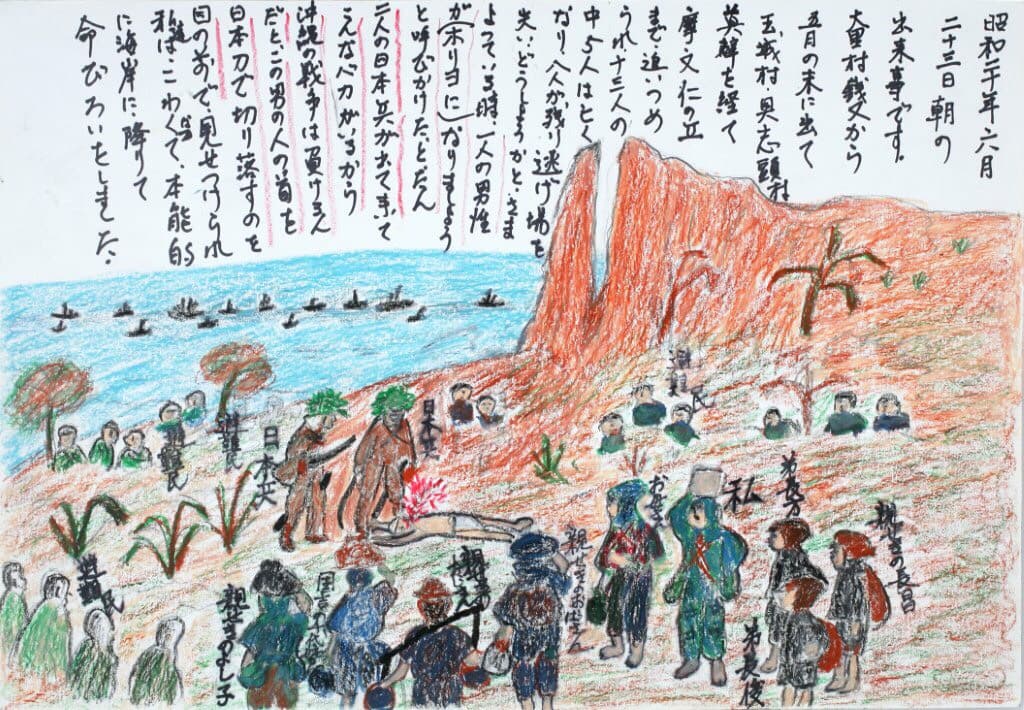 昭和二十年六月
二十三日朝の
出来事です。
大里村銭又から
五月の末に出て
玉城村・具志頭村
を経て
摩文仁の丘
まで追いつめ
られ十三人の
中、5人は
なり、八人が残り逃げ場を
失い、どうしようかと、さま
よっている時、一人の男性
が(ホリョに)なりましよう
と呼びかけた、とたん
二人の日本兵が出て来て
こんなバカがいるから
沖縄の戦争は負けるん
だと、この男の人の首を
日本刀で切り落すのを
目の前で見せつけられ
私達は、こわくて、本能的
に海岸に降りて
命びろいをしました。
避難民
日本兵
日本兵
避難民
避難民
私
親せきの長男
弟
親せきのおばさん
親せきの
親せきのよし子
避難民